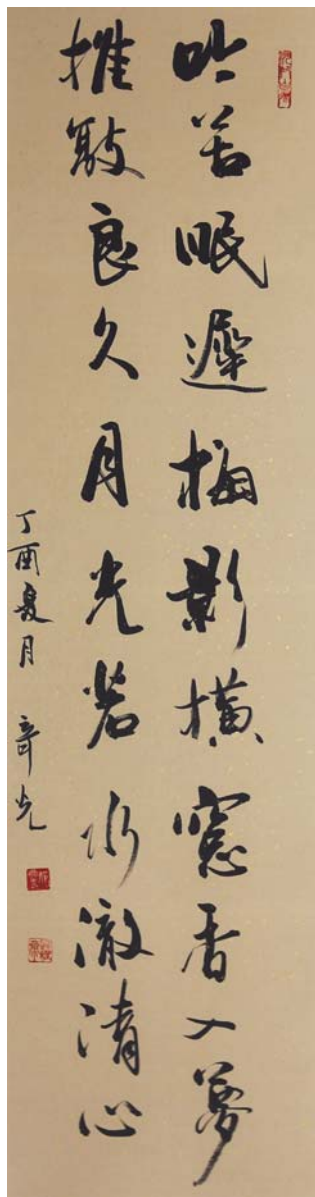 吟苦眠遲梅影橫窻香入夢
推敲良久月光若水澈清心
丁酉夏月 光